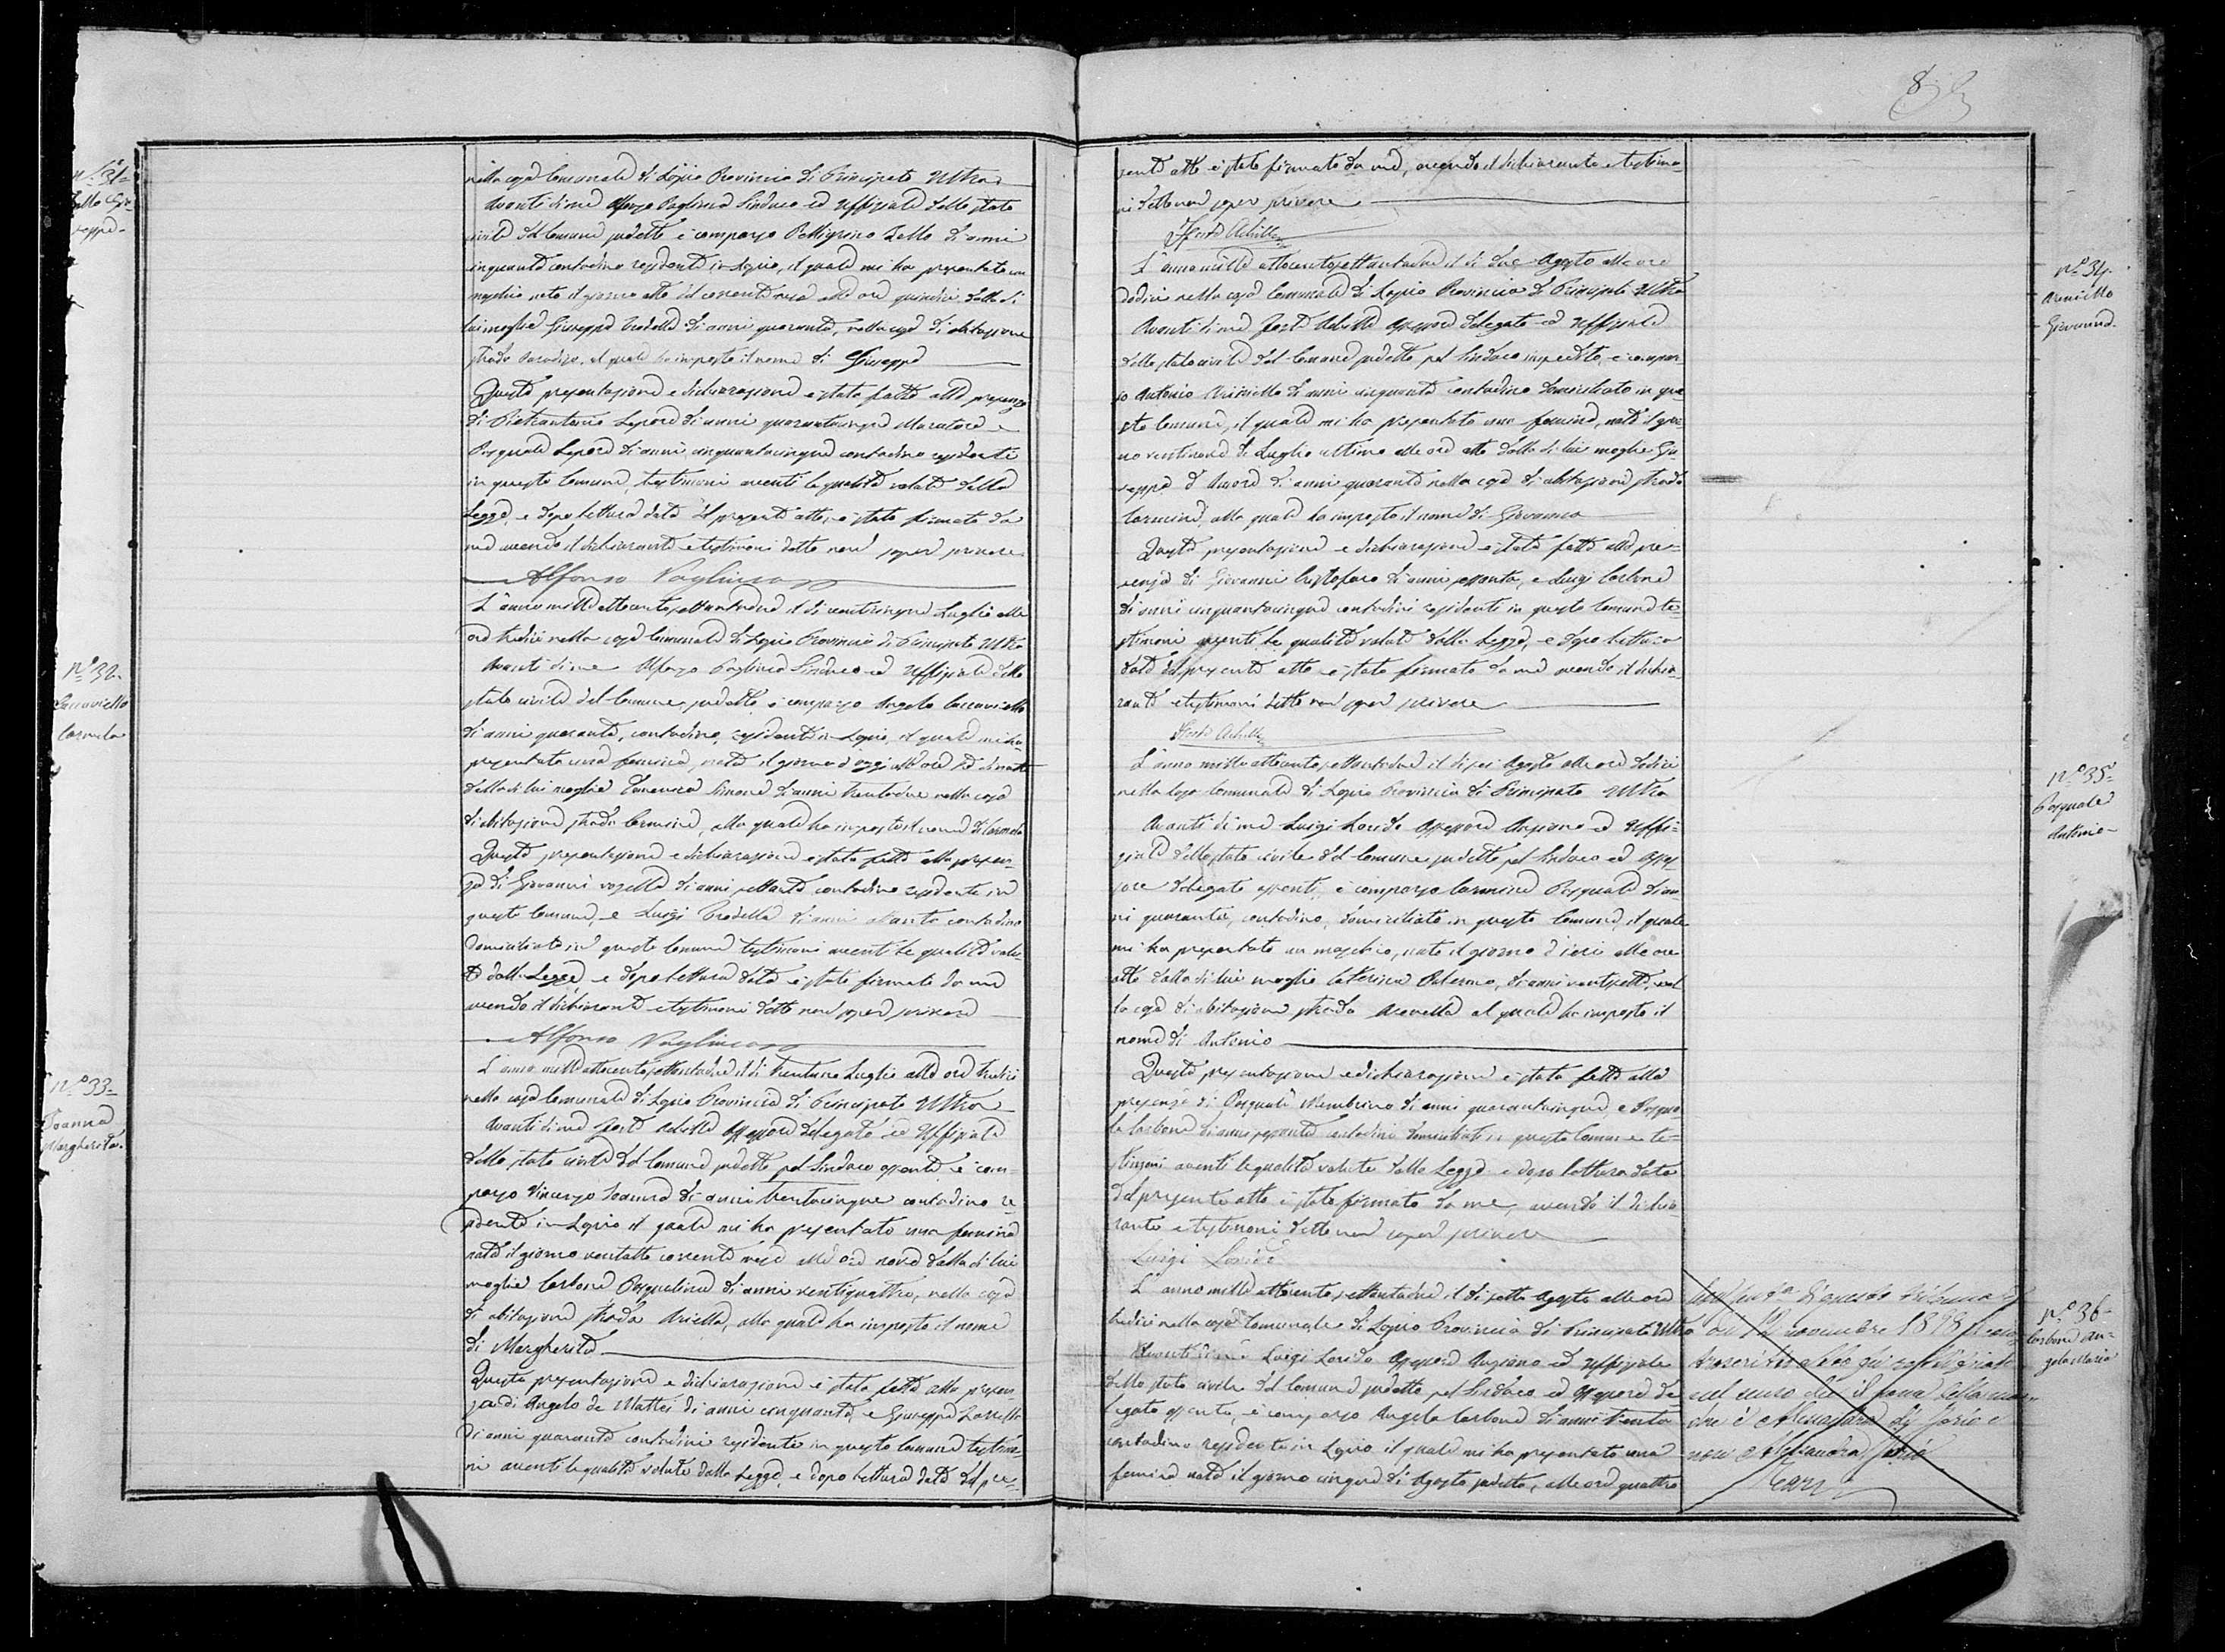 8
nella casa Comunale di Lapio Provincia di Principato Ultra
Avanti di me Alfonzo Sindaco ed Uffiziale dello stato
civile del Comune sudetto è comparso Pellegrino Zollo di anni
cinquanta contadino residente in Lapio, il quale mi ha presentato un
maschio nato il giorno otto del corrente mese alle ore quindici dalla di
lui moglie Giuseppa Trodella di anni quaranta, nella casa di abitazione
strada al quale ha imposto il nome di Giuseppe
Questa presentazione e dichiarazione è stata fatta alla presenza
di Pietrantonio Lepore di anni quarantacinque Muratore e
Pasquale Lepore di anni cinquantacinque contadino residenti
in questo Comune, testimoni aventi le qualità volute dalla
Legge, e dopo lettura data del presente atto, è stato firmato da
me avendo il dichiarante e testimoni detto non saper scrivere
Alfonso
L'anno mille ottocento settantadue il dì venticinque Luglio alle
ore tredici nella casa Comunale di Lapio Provincia di Principato Ultra
Avanti di me Alfonzo Sindaco ed Uffiziale dello
stato civile del Comune sudetto è comparso Angelo Caccaviello
di anni quaranta, contadino, residente in Lapio, il quale mi ha
presentata una femina, nata il giorno d'oggi alle ore di notte
dalla di lui moglie Simone di anni trentadue nella casa
di abitazione strada Carmine, alla quale ha imposto il nome di Carmela
Questa presentazione e dichiarazione è stata fatta alla presen-
za di Giovanni di anni settanta contadino residente in
questo Comune, e Luigi Trodella di anni ottanta contadino
domiciliato in questo Comune testimoni aventi le qualità volu-
te dalla Legge, e dopo lettura data è stato firmato da me
avendo il dichiarante e testimoni detto non saper scrivere
Alfonso
L'anno mille ottocento settantadue il dì trentuno Luglio alle ore tredici
nella casa Comunale di Lapio Provincia di Principato Ultra
Avanti di me Achille Assessore delegato ed Uffiziale
dello stato civile del Comune sudetto pel Sindaco assente è com-
parso Vincenzo Ioanna di anni trentacinque contadino re-
sidente in Lapio il quale mi ha presentato una femina
nata il giorno ventotto corrente mese alle ore nove dalla di lui
moglie Carbone Pasqualina di anni ventiquattro, nella casa
di abitazione strada Ariella, alla quale ha imposto il nome
di Margherita
Questa presentazione e dichiarazione è stata fatta alla presen-
za di Angelo de Mattei di anni cinquanta, e Giuseppe
di anni quaranta contadini residenti in questo Comune testimo-
ni aventi le qualità volute dalla Legge, e dopo lettura data del pre-
N.° 31-
Zollo Giu-
seppe-
N.° 32-
Caccaviello
Carmela
N.° 33-
Ioanna
Margherita
sente atto è stato firmato da me, avendo il dichiarante e testimo-
ni detto non saper scrivere
Achille
L'anno mille ottocento settantadue il dì due Agosto alle ore
dodici nella casa Comunale di Lapio Provincia di Principato Ultra
Avanti di me Achille Assessore delegato ed Uffiziale
dello stato civile del Comune sudetto pel Sindaco impedito, è compar-
so Antonio Arminiello di anni cinquanta contadino domiciliato in que-
sto Comune, il quale mi ha presentato una femina, nata il gior-
no ventinove di Luglio ultimo alle ore otto dalla di lui moglie Giu-
seppa d'Amore di anni quaranta nella casa di abitazione strada
Carmine, alla quale ha imposto il nome di Giovanna
Questa presentazione e dichiarazione è stata fatta alla pre-
senza di Giovanni Cristofaro di anni sessanta, e Luigi Carbone
di anni cinquantacinque contadini residenti in questo Comune te-
stimoni aventi le qualità volute dalla Legge, e dopo lettura
data del presente atto è stato firmato da me avendo il dichia-
rante e testimoni detto non saper scrivere
Achille
L'anno mille ottocento settantadue il dì sei Agosto alle ore dodici
nella Casa Comunale di Lapio Provincia di Principato Ultra
Avanti di me Luigi Assessore Anziano ed Uffi-
ziale dello stato civile del Comune sudetto pel Sindaco ed Asses-
sore delegato assenti, è comparso Carmine Pasquale di an-
ni quaranta, contadino, domiciliato in questo Comune, il quale
mi ha presentato un maschio, nato il giorno d'ieri alle ore
otto dalla di lui moglie Caterina Palermo, di anni ventisette, nel-
la casa di abitazione strada al quale ha imposto il
nome di Antonio
Questa presentazione e dichiarazione è stata fatta alla
presenza di Pasquale Membrino di anni quarantacinque, e Pasqua-
le Carbone di anni sessanta contadini domiciliati in questo Comune te-
stimoni aventi le qualità volute dalla Legge e dopo lettura data
del presente atto è stato firmato da me, avendo il dichia-
rante e testimoni detto non saper scrivere
Luigi
L'anno mille ottocento settantadue il dì sette Agosto alle ore
tredici nella casa Comunale di Lapio Provincia di Principato Ultra
Avanti di me Luigi Assessore Anziano ed Uffiziale
dello stato civile del Comune sudetto pel Sindaco ed Assessore de-
legato assente, è comparso Angelo Carbone di anni trenta
contadino residente in Lapio il quale mi ha presentato una
femina nata il giorno cinque di Agosto sudetto, alle ore quattro
12 novembre 1878
nel senso che il nome della ma-
dre è
non
N.° 34-
Arminiello
Giovanna-
N.° 35-
Pasquale
Antonio-
N.° 36-
Carbone An-
gela Maria